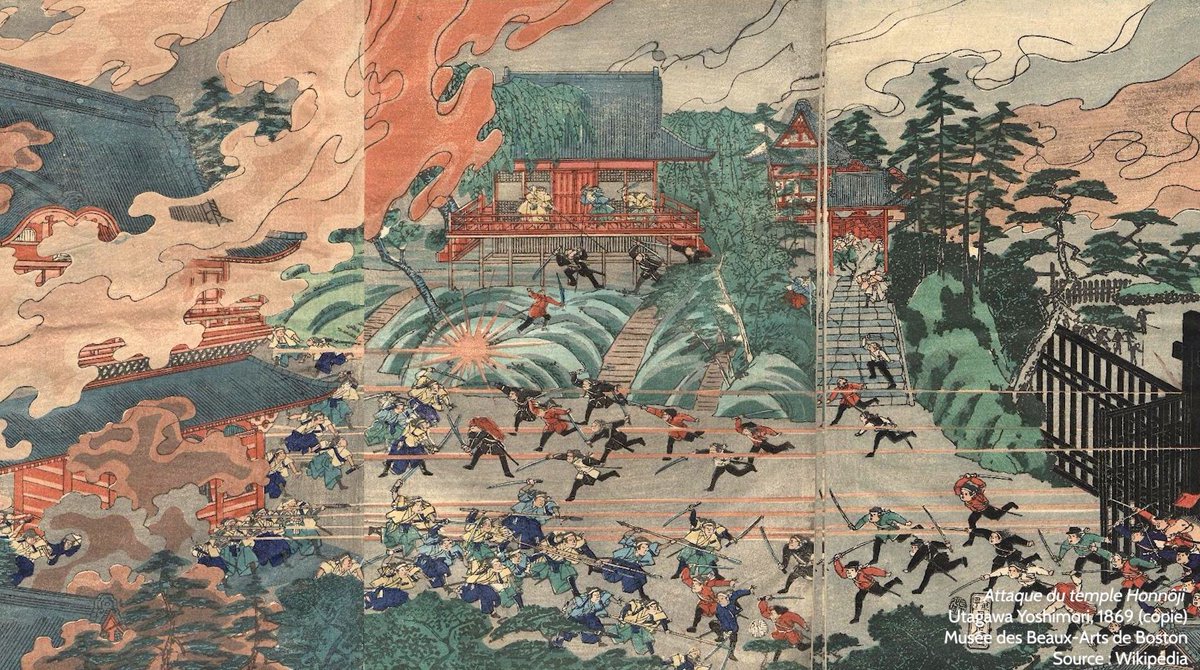 Attaque du temple Honnōji
Utagawa Yoshimori, 1869 (copie)
Musée des Beaux-Arts de Boston
Source : Wikipédia